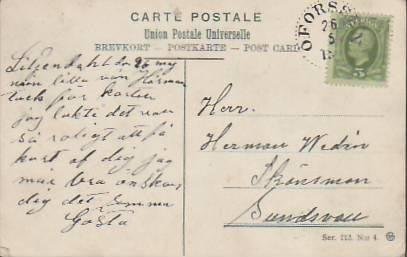 CARTE POSTALE
Union Postale Universelle
BREVKORT — POSTKARTE — POST CARD
OFORS
26
5
Liljendahl den 26 maj
min lilla vän Herman
tack för kortet
jag det var
så roligt att få
kort af dig jag
mår bra önskar
dig det samma
Gösta
Herr.
Herman Wedin
Skönsmon
Sundsvall
Ser. 112. No 4.